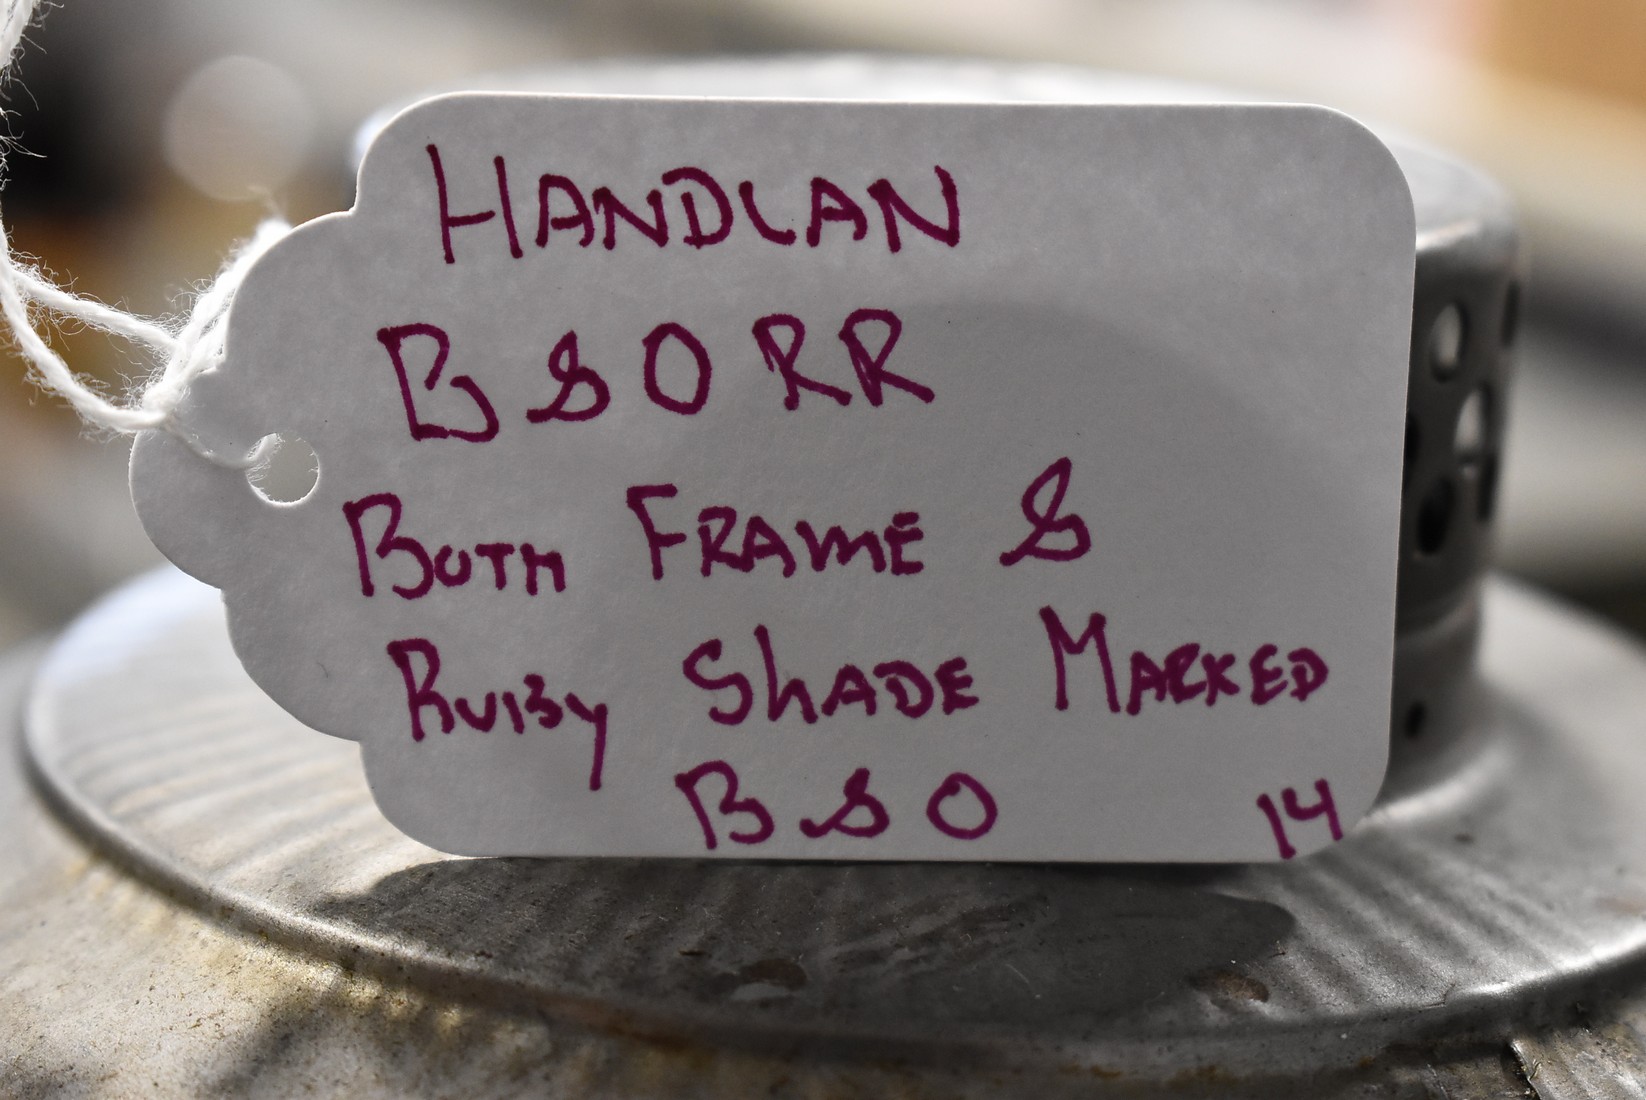 HANDLAN
B & O RR
BOTH FRAME &
RUBY SHADE MARKED
B & O 14